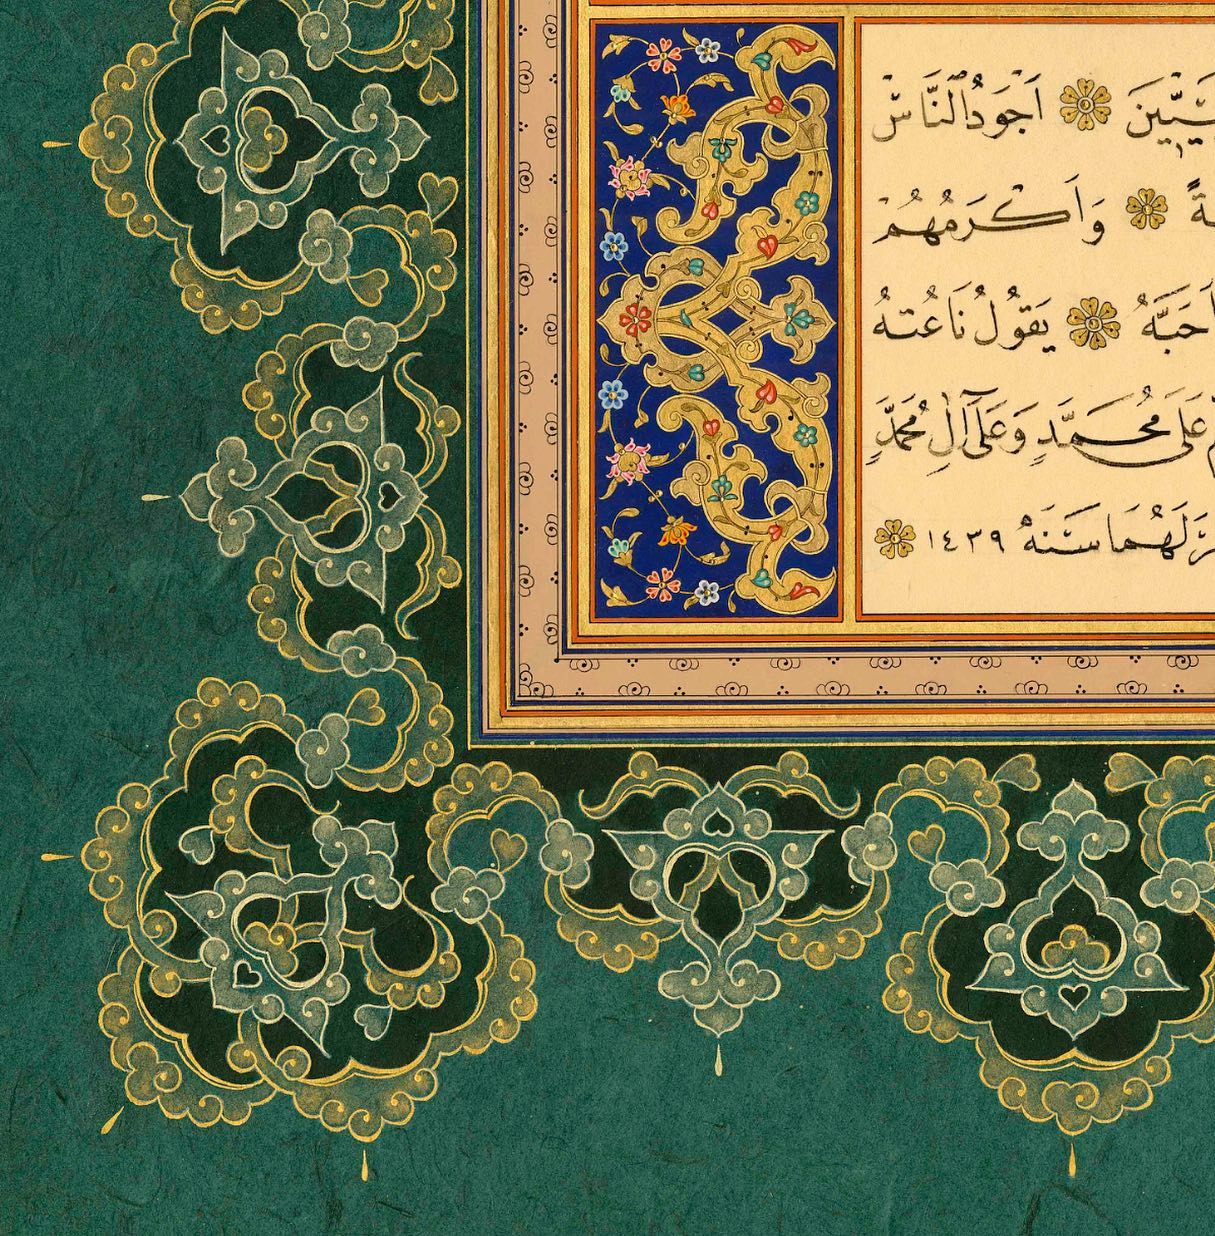 ـيّينَ ۞ اَجْوَدُ النَّاسْ
ـةً ۞ وَاَكْرَمُهُمْ
اَحَبَّهُ ۞ يَقُولُ نَاعُتهُ
عَلَى مُحَمَّدٍ وَعَلَى آلِ مُحَمَّدٍ
ـرَلَهُمَا سَنَهُ ١٤٣٩ ۞